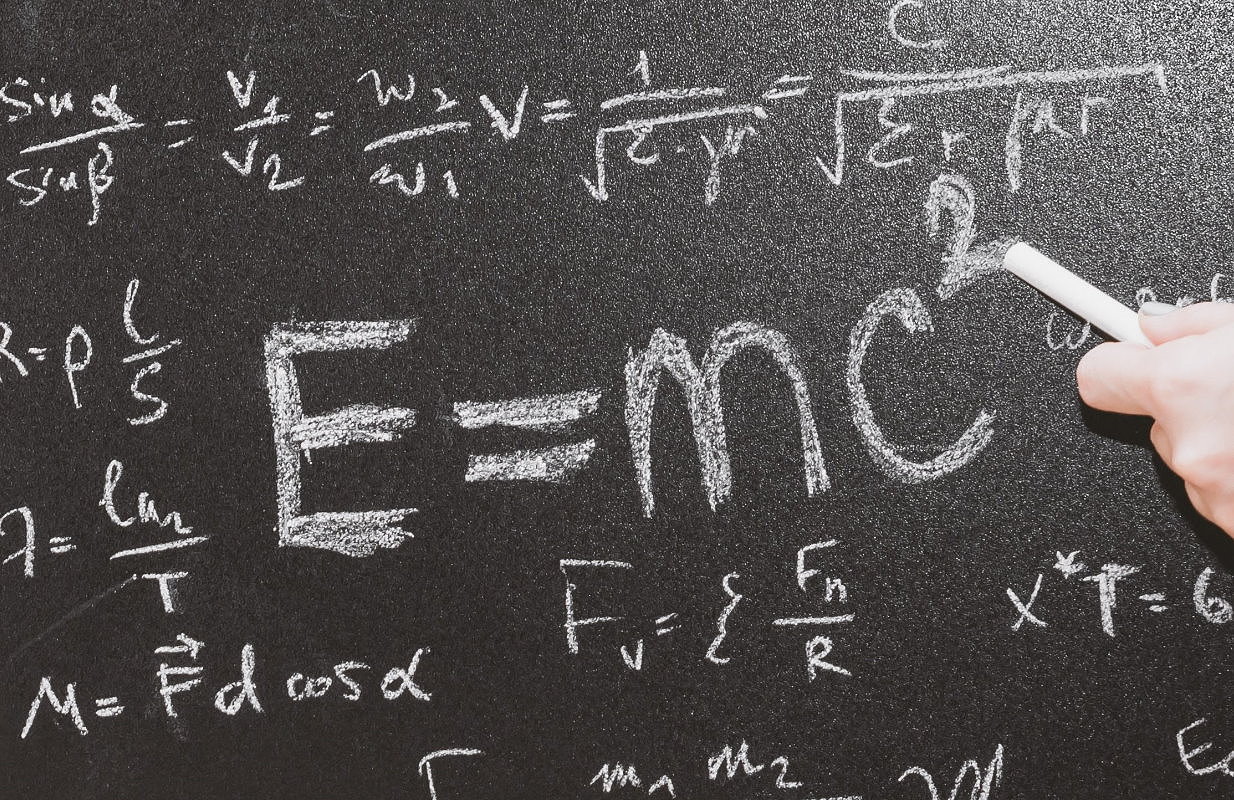 sin α / sin β = v1 / v2 = w2 / w1 v = 1 / √ε·μ = c / √εr μr
R = ρ l / S
E = mc²
λ = ln2 / T
Fv = { Fn / R
x*T = 6
M = F⃗ d cos α
m1 m2